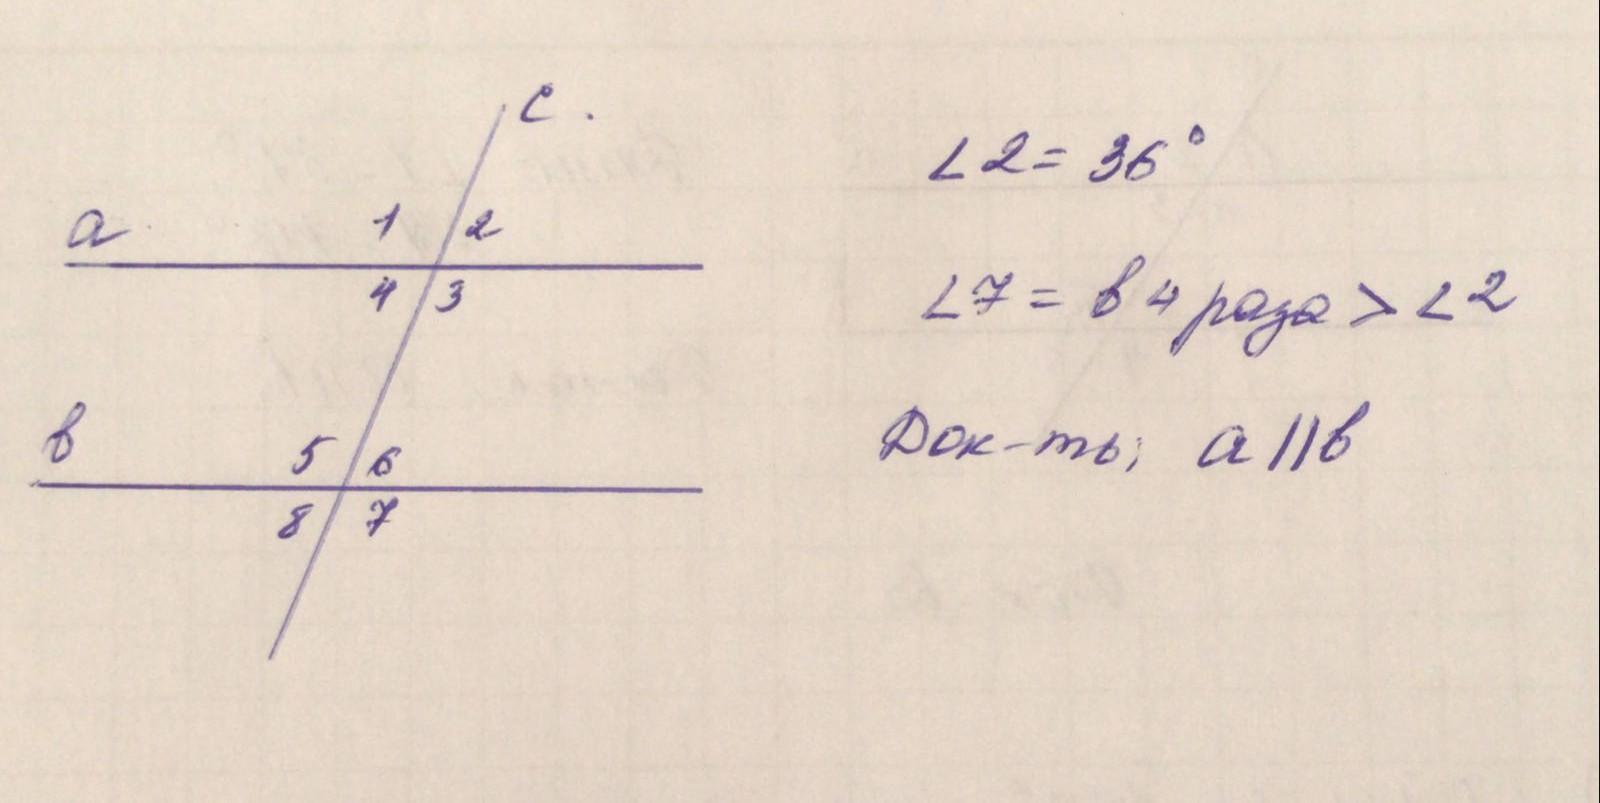 c.
a
1 2
4 3
в
5 6
8 7
∠2 = 36°
∠7 = в 4 раза > ∠2
Док-ть; a || в